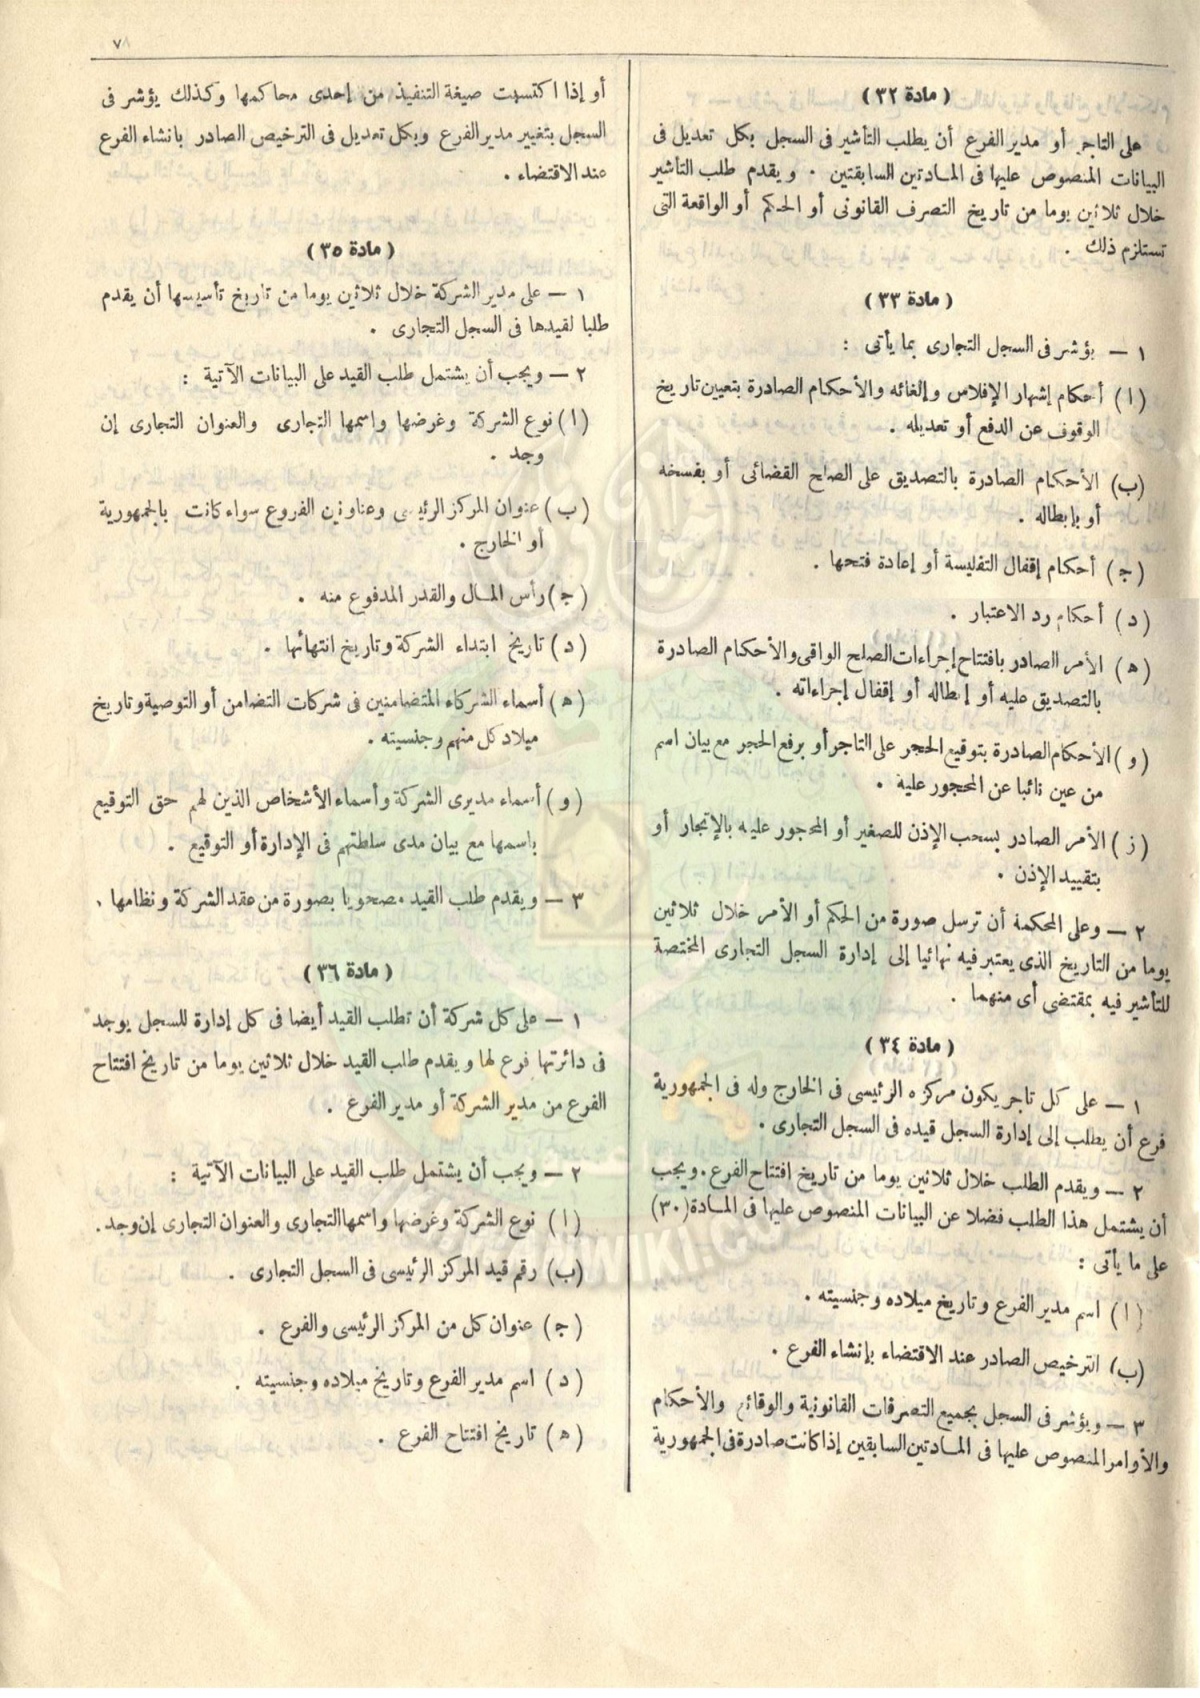 ٧٨
( مادة ٣٢ )
على التاجر أو مدير الفرع أن يطلب التأشير فى السجل بكل تعديل فى
البيانات المنصوص عليها فى المادتين السابقتين . ويقدم طلب التأشير
خلال ثلاثين يوما من تاريخ التصرف القانونى أو الحكم أو الواقعة التى
تستلزم ذلك .
( مادة ٣٣ )
١ — يؤشر فى السجل التجارى بما يأتى :
( ا ) أحكام إشهار الإفلاس وإلغائه والأحكام الصادرة بتعيين تاريخ
الوقوف عن الدفع أو تعديله .
(ب) الأحكام الصادرة بالتصديق على الصلح القضائى أو بفسخه
أو بإبطاله .
(ج) أحكام إقفال التفليسة أو إعادة فتحها .
( د ) أحكام رد الاعتبار .
( ه ) الأمر الصادر بافتتاح إجراءات الصلح الواقى والأحكام الصادرة
بالتصديق عليه أو إبطاله أو إقفال إجراءاته .
( و ) الأحكام الصادرة بتوقيع الحجر على التاجر أو برفع الحجر مع بيان اسم
من عين نائبا عن المحجور عليه .
( ز ) الأمر الصادر بسحب الإذن للصغير أو المحجور عليه بالإتجار أو
بتقييد الإذن .
٢ — وعلى المحكمة أن ترسل صورة من الحكم أو الأمر خلال ثلاثين
يوما من التاريخ الذى يعتبر فيه نهائيا إلى إدارة السجل التجارى المختصة
للتأشير فيه بمقتضى أى منهما .
( مادة ٣٤ )
١ — على كل تاجر يكون مركزه الرئيسى فى الخارج وله فى الجمهورية
فرع أن يطلب إلى إدارة السجل قيده فى السجل التجارى .
٢ — ويقدم الطلب خلال ثلاثين يوما من تاريخ افتتاح الفرع . ويجب
أن يشتمل هذا الطلب فضلا عن البيانات المنصوص عليها فى المادة (٣٠)
على ما يأتى :
( ا ) اسم مدير الفرع وتاريخ ميلاده وجنسيته .
(ب) الترخيص الصادر عند الاقتضاء بإنشاء الفرع .
٣ — ويؤشر فى السجل بجميع التصرفات القانونية والوقائع والأحكام
والأوامر المنصوص عليها فى المادتين السابقين إذا كانت صادرة فى الجمهورية
أو إذا اكتسبت صيغة التنفيذ من إحدى محاكمها وكذلك يؤشر فى
السجل بتغيير مدير الفرع وبكل تعديل فى الترخيص الصادر بانشاء الفرع
عند الاقتضاء .
( مادة ٣٥ )
١ — على مدير الشركة خلال ثلاثين يوما من تاريخ تأسيسها أن يقدم
طلبا لقيدها فى السجل التجارى .
٢ — ويجب أن يشتمل طلب القيد على البيانات الآتية :
( ا ) نوع الشركة وغرضها واسمها التجارى والعنوان التجارى إن
وجد .
( ب ) عنوان المركز الرئيسى وعناوين الفروع سواء كانت بالجمهورية
أو الخارج .
( ج ) رأس المال والقدر المدفوع منه .
( د ) تاريخ ابتداء الشركة وتاريخ انتهائها .
( ه ) أسماء الشركاء المتضامنين فى شركات التضامن أو التوصية وتاريخ
ميلاد كل منهم وجنسيته .
( و ) أسماء مديرى الشركة وأسماء الأشخاص الذين لهم حق التوقيع
باسمها مع بيان مدى سلطتهم فى الإدارة أو التوقيع .
٣ — ويقدم طلب القيد مصحوبا بصورة من عقد الشركة ونظامها .
( مادة ٣٦ )
١ — على كل شركة أن تطلب القيد أيضا فى كل إدارة للسجل يوجد
فى دائرتها فرع لها ويقدم طلب القيد خلال ثلاثين يوما من تاريخ افتتاح
الفرع من مدير الشركة أو مدير الفرع .
٢ — ويجب أن يشتمل طلب القيد على البيانات الآتية :
( ا ) نوع الشركة وغرضها واسمها التجارى والعنوان التجارى إن وجد .
(ب) رقم قيد المركز الرئيسى فى السجل التجارى .
(ج) عنوان كل من المركز الرئيسى والفرع .
( د ) اسم مدير الفرع وتاريخ ميلاده وجنسيته .
( ه ) تاريخ افتتاح الفرع .